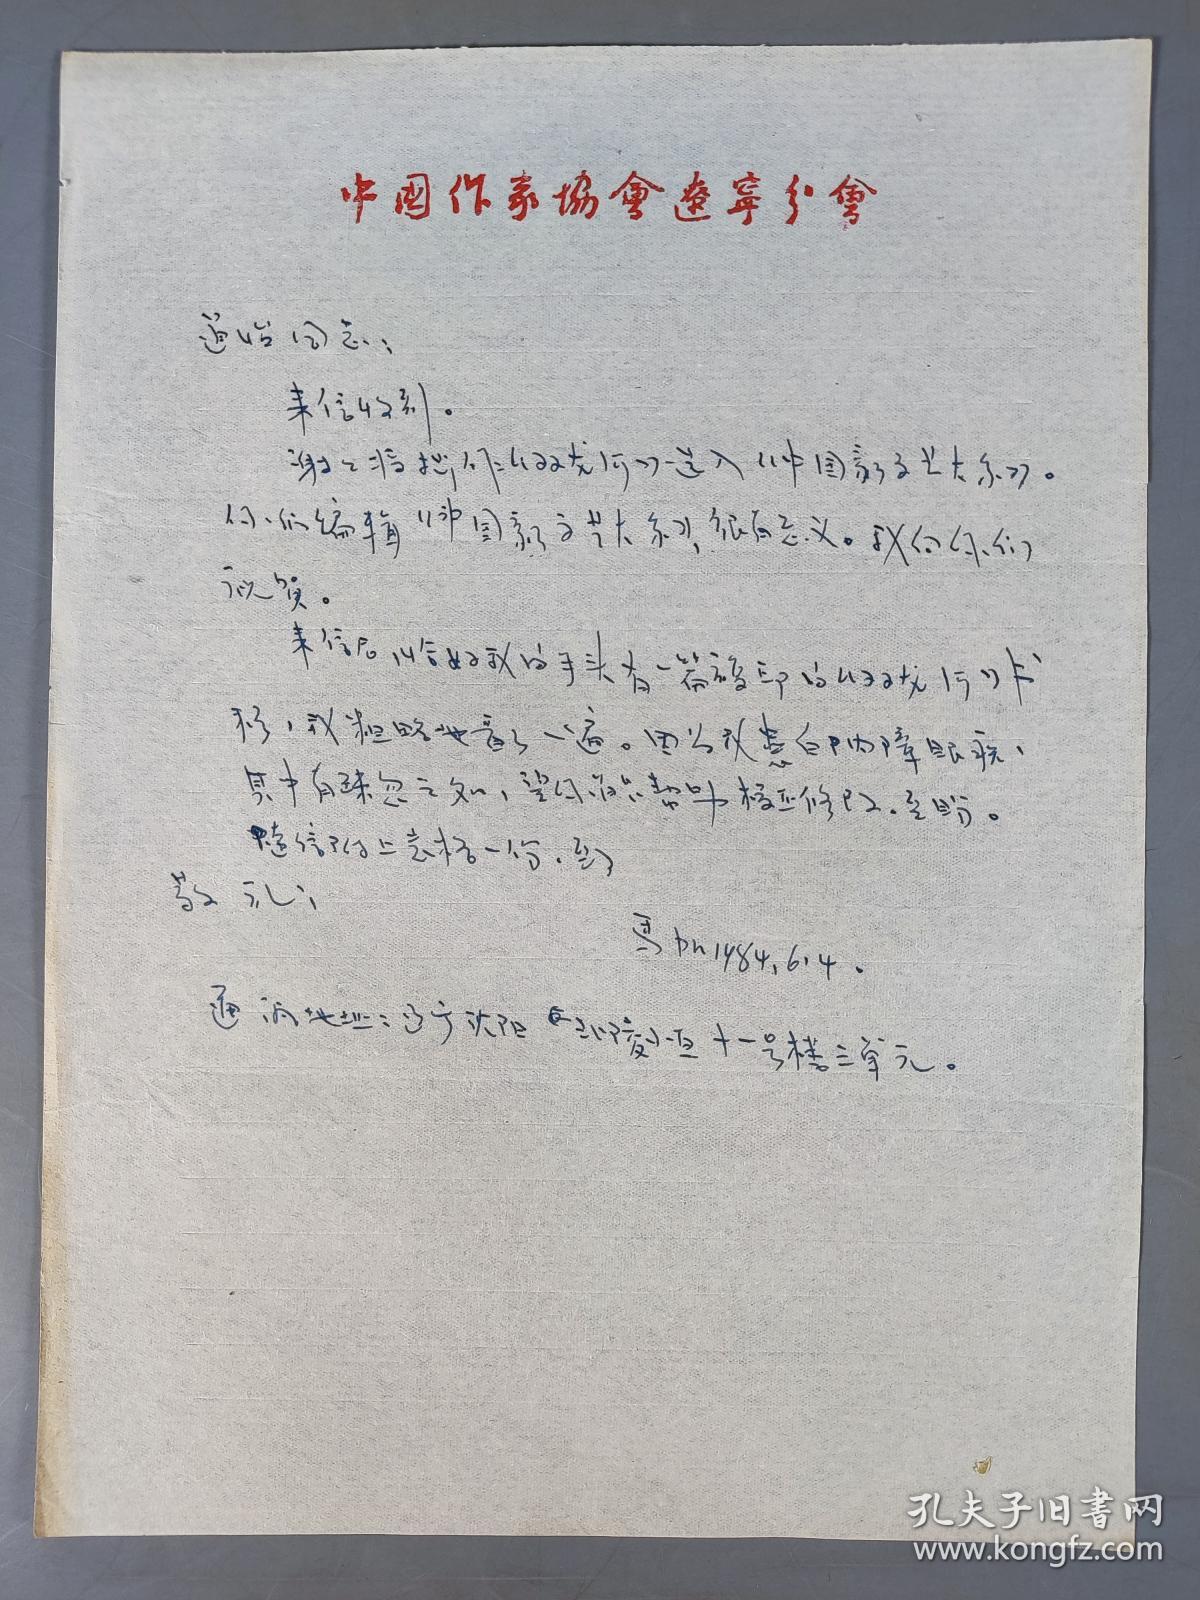 中国作家協會遼寧分會
道怡同志：
来信收到。
谢谢将拙作《双龙河》选入《中国新文艺大系》。
你们编辑《中国新文艺大系》，很有意义。我向你们
祝贺。
来信后，恰好我的手头有一篇复印的《双龙河》书
稿，我粗略地看了一遍。因为我患白内障眼疾，
其中有疏忽之处，望你们帮助校正修改，至盼。
随信附上表格一份。致
敬礼！
马加 1984.6.4.
通讯地址：辽宁沈阳 小区十一号楼三单元。
孔夫子旧书网
www.kongfz.com